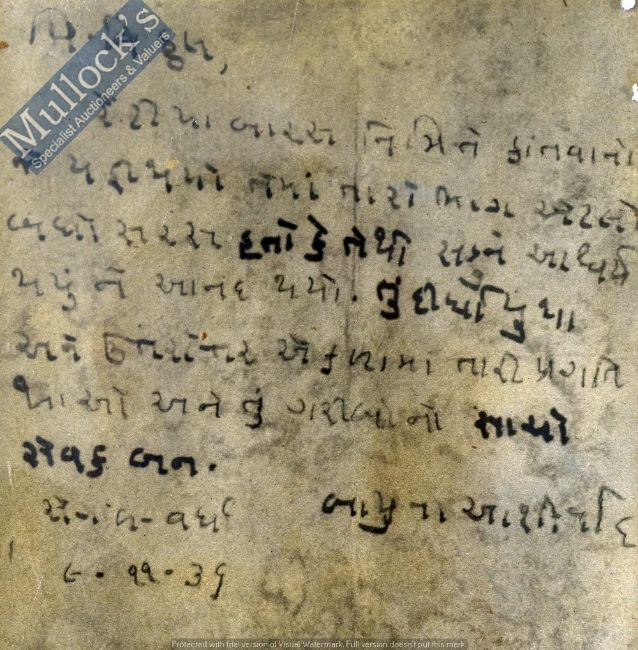 Mullock's
Specialist Auctioneers & Valuers
ચિ.
રેંટીયા બારસ નિમિતે કાંતવાનો
જે યજ્ઞ થયો તેમાં તારો ભાગ એટલો
બધો સરસ હતો કે તેથી સહુને આશ્ચર્ય
થયું ને આનંદ થયો. તું દીર્ઘાયુ થા
અને ઉત્તરોત્તર એ કળામાં તારી પ્રગતિ
થાઓ અને તું ગરીબોનો સાચો
સેવક બન.
બાપુના આશીર્વાદ
વર્ધા
૯-૧૧-૩૬
Protected with trial version of Visual Watermark. Full version doesn't put this mark.